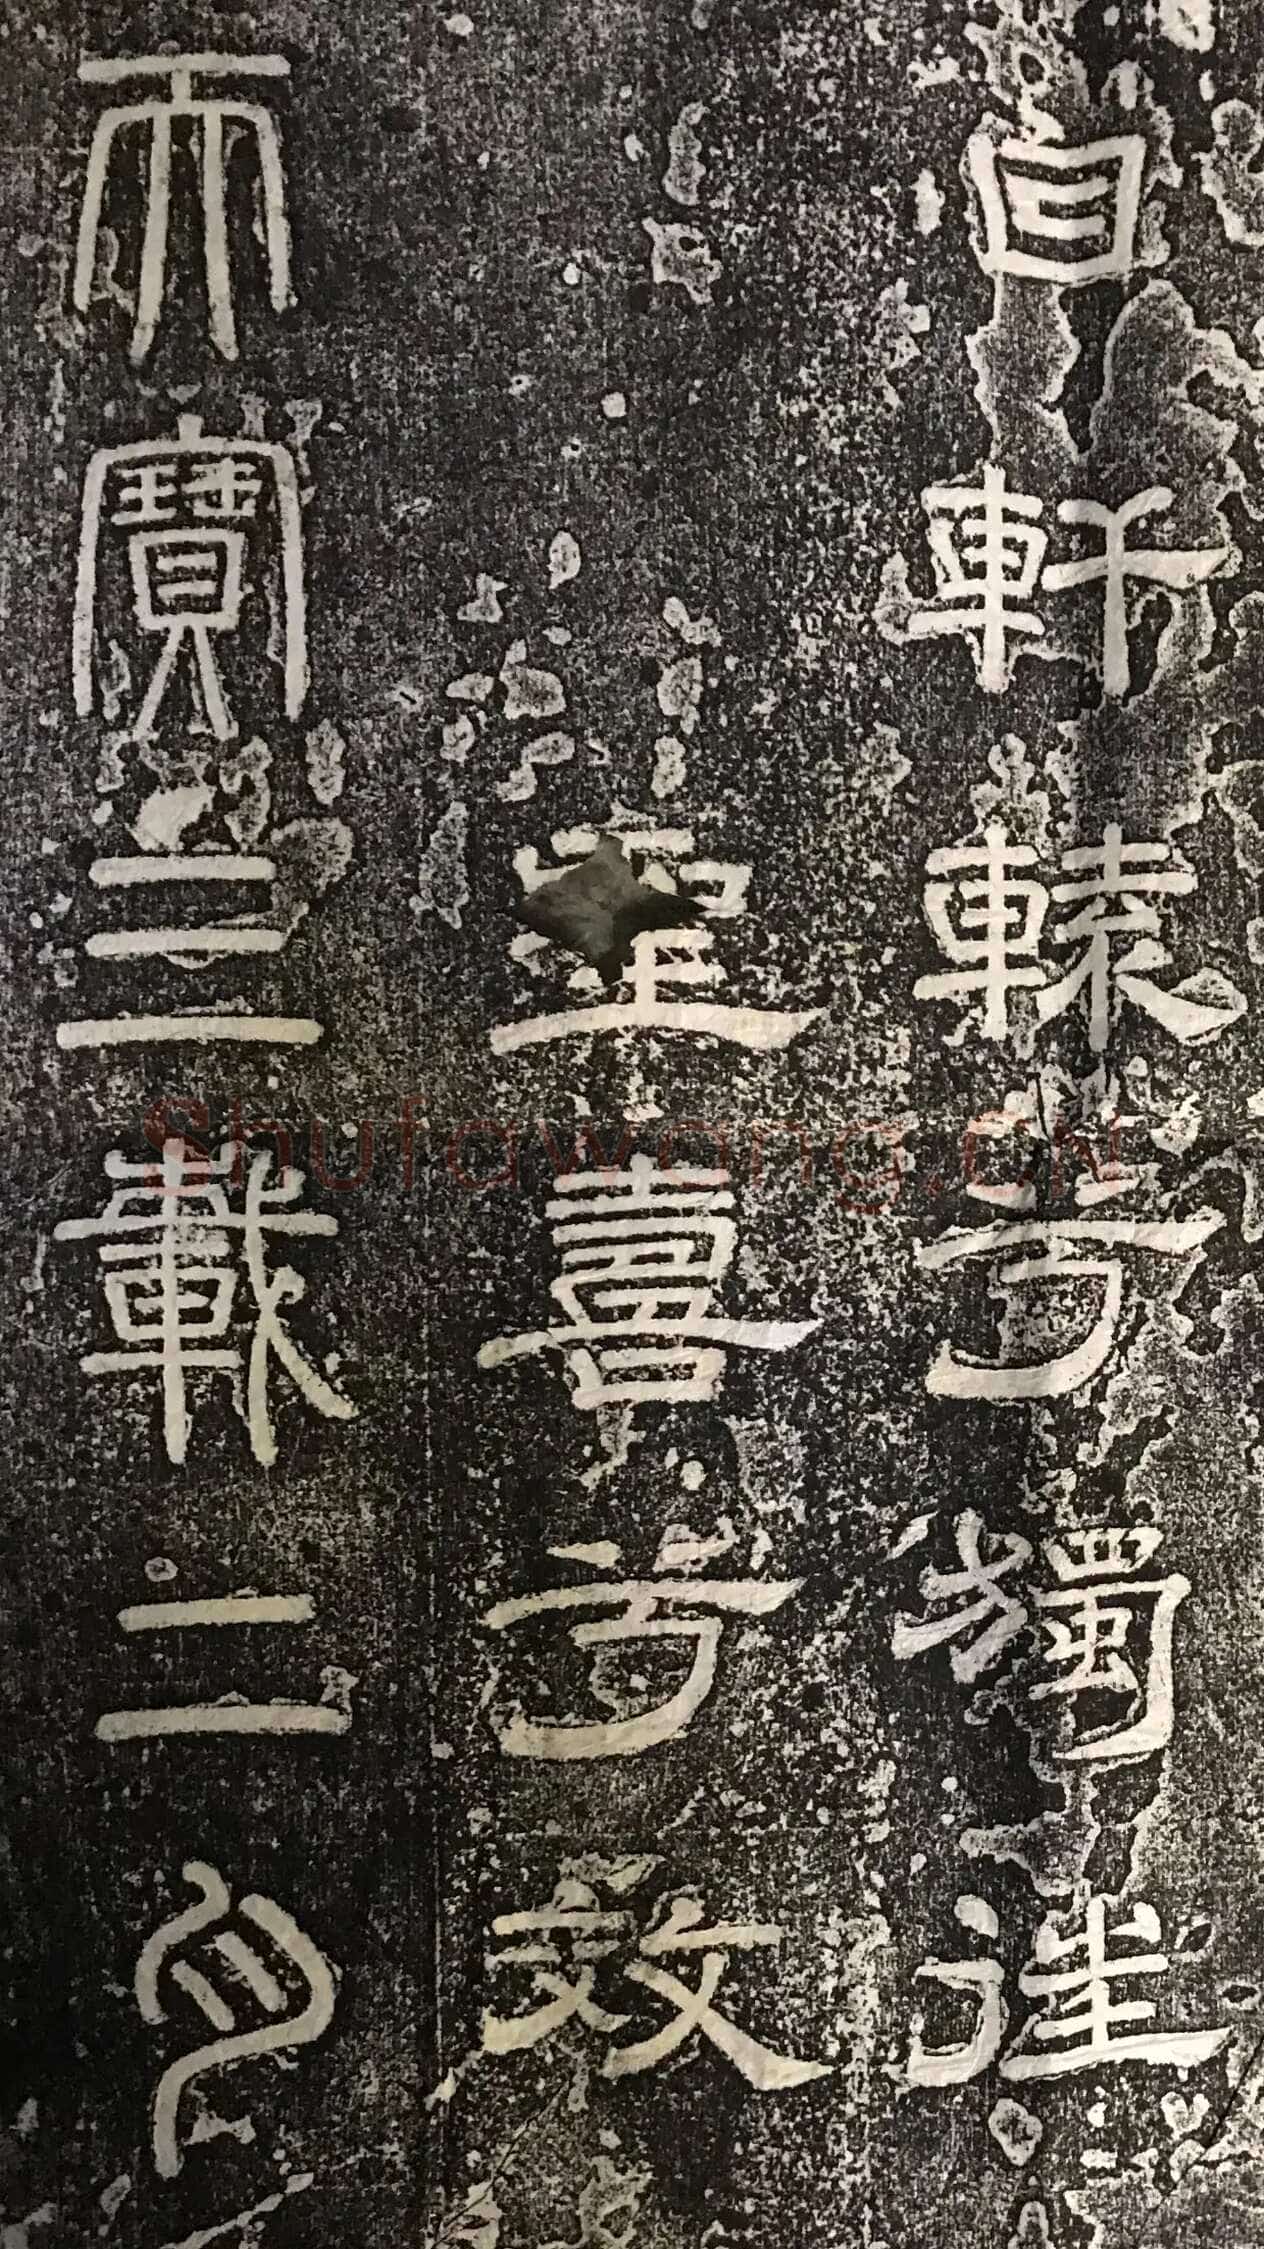 自軒轅兮獨往
聖壽兮效
天寶三載二月
Shufawang.CN